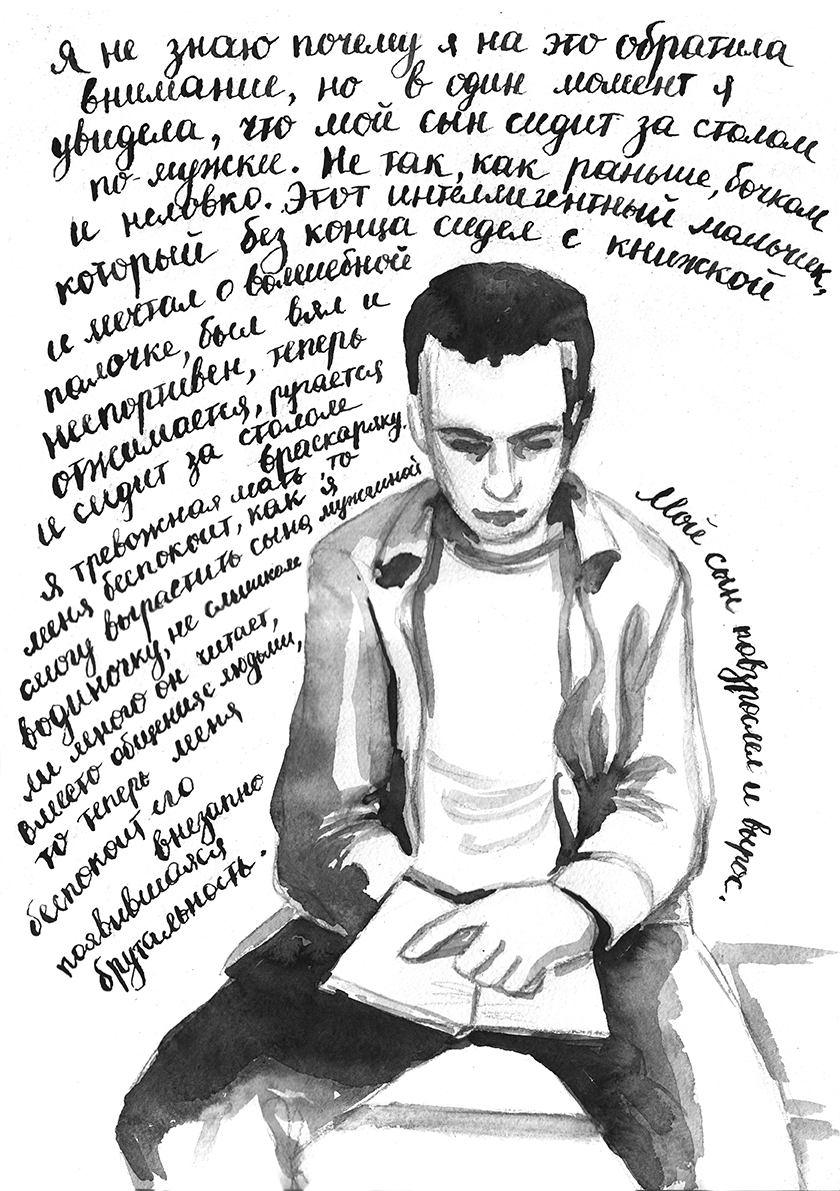 Я не знаю почему я на это обратила
внимание, но в один момент я
увидела, что мой сын сидит за столом
по-мужски. Не так, как раньше, бочком
и неловко. Этот интеллигентный мальчик,
который без конца сидел с книжкой
и мечтал о волшебной
палочке, был вял и
неспортивен, теперь
отжимается, ругается
и сидит за столом
враскаряку.
Я тревожная мать, то
меня беспокоит, как я
смогу вырастить сына мужчиной
водиночку, не слишком
ли много он читает,
вместо общения с людьми,
то теперь меня
беспокоит его
внезапно
появившаяся
брутальность.
Мой сын повзрослел и вырос.